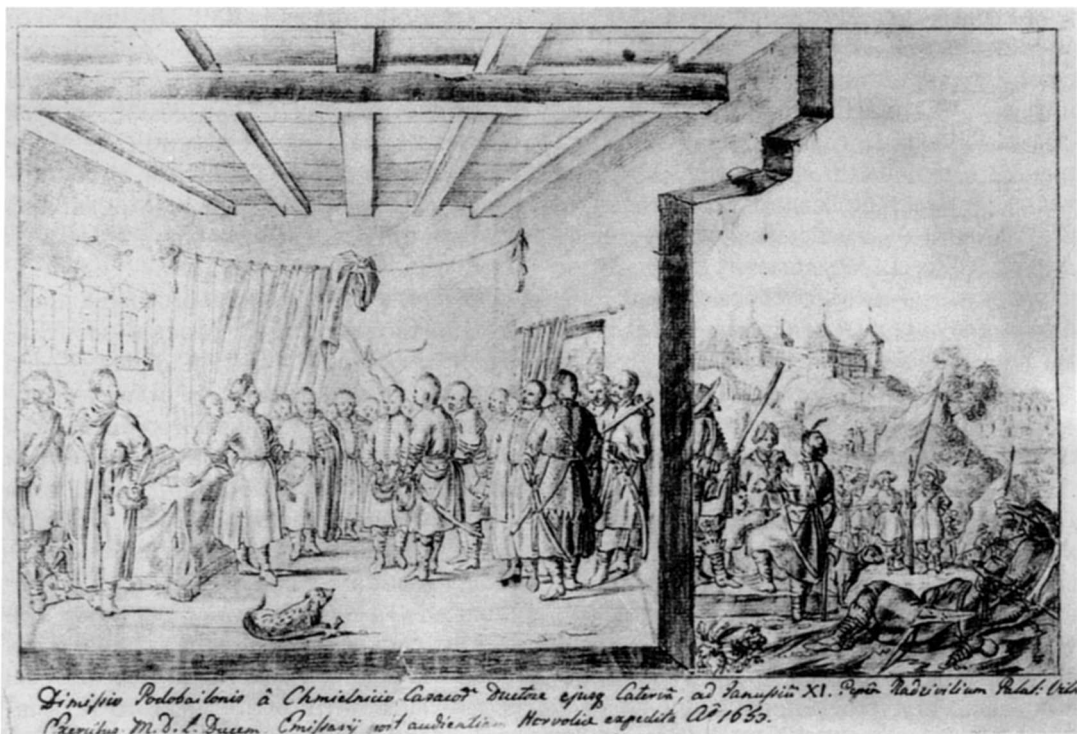 Dimissio Podobailonis â Chmielnicio Casacor. Ductore ejusq Catervâ, ad Janussiũ XI. Radzivilium Palat: Viln
Exercitus M. D. L. Ducem, Emissarij post audientiam Horvoliæ expedita Aõ 1650.